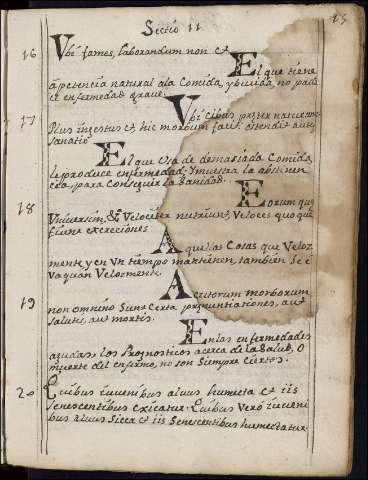 Sectio 11
15
16 Vbi fames, laborandum non est
El que tiene
apetencia natural ala Comida, y buida no pade
ce enfermedad grave.
17 Vbi cibus præter naturam
Plus ingestus est hic morbum facit ostendit aut
sanatio
El que Usa de demasiada Comida
le produce enfermedad: Ymuestra la abstinen
cia para Conseguir la Sanidad.
18 Eorum que
Vniversim, & Velociter nutriunt Veloces quoque
fiunt excreciones
Aquellas Cosas que Veloz
mente y en Vn tiempo mantienen, tambien Se e
Vaquan Velozmente.
19 Acutorum morborum
non omnino Sunt Certa prænuntiationes, aut
salutis, aut mortis.
En las enfermedades
agudas, los Prognosticos acerca de la Salud, O
muerte del enfermo, no son Siempre Ciertos.
20 Quibus iuvenibus alvus humecta est iis
Senescentibus exicatur. Quibus Vero iuveni
bus alvus Sicca est iis Senescentibus humectatur